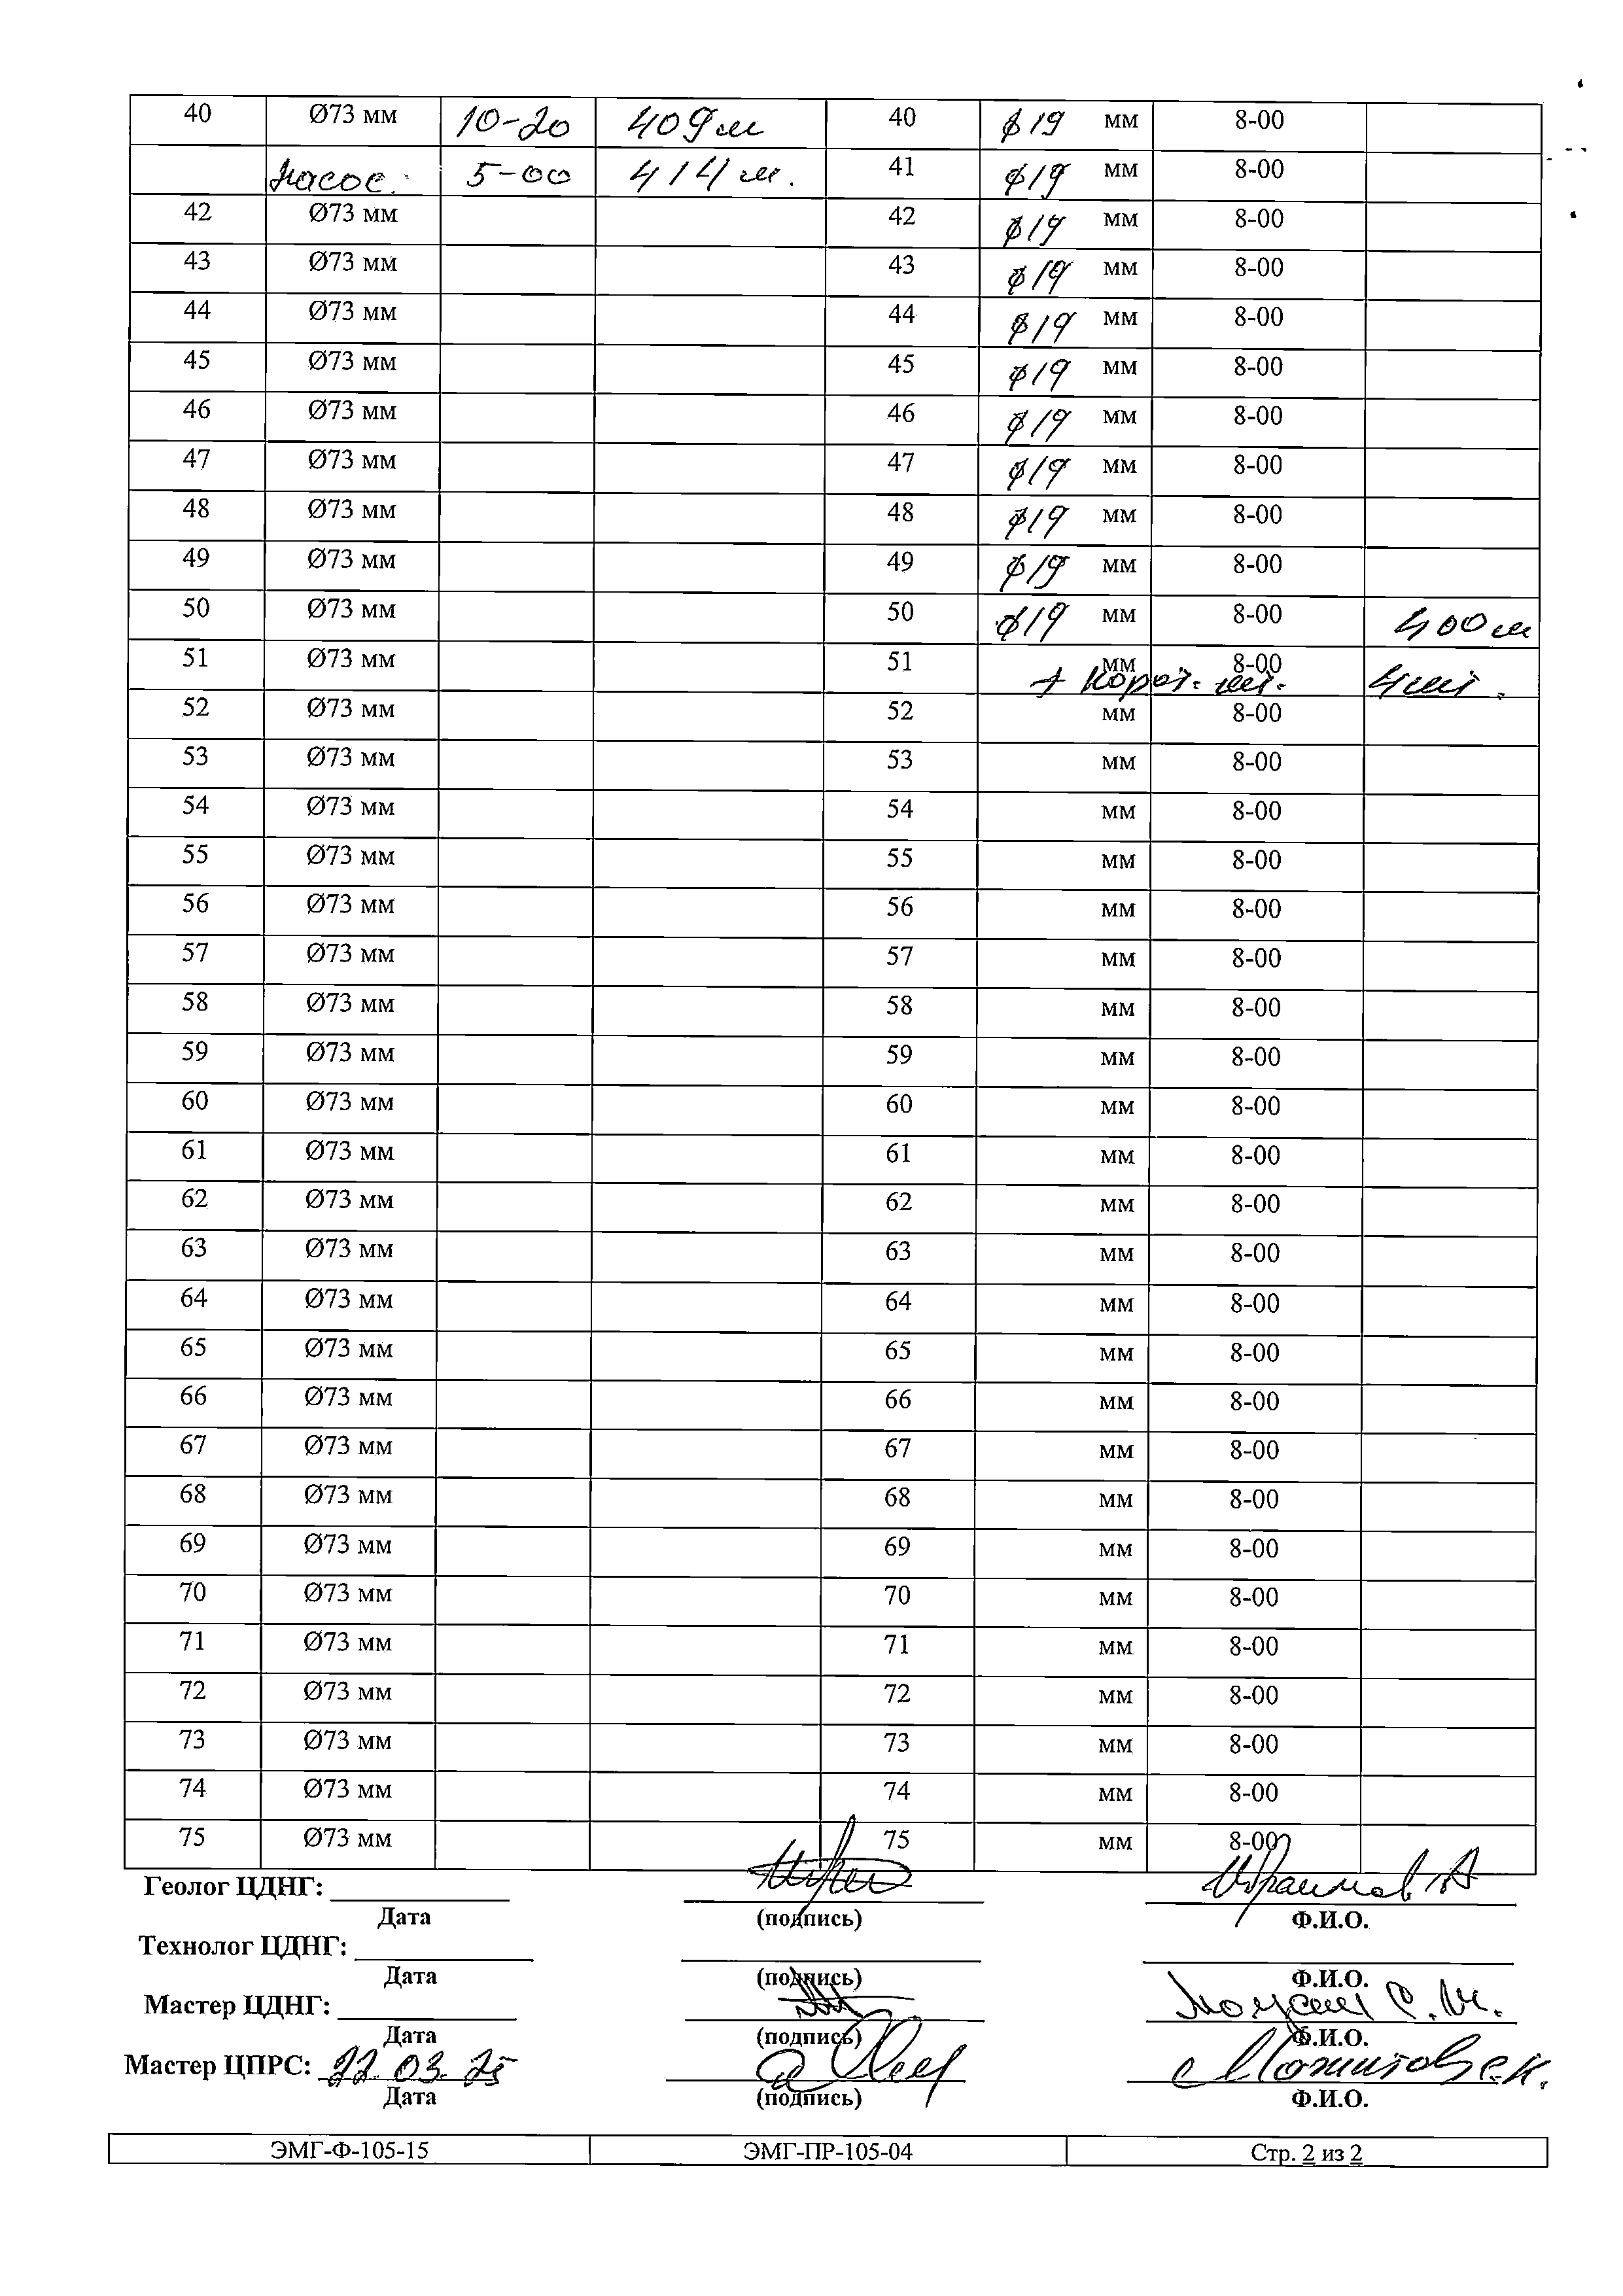 40 Ø73 мм 10-20 409 м 40 ø19 мм 8-00
Насос. 5-00 414 м. 41 ø19 мм 8-00
42 Ø73 мм 42 ø19 мм 8-00
43 Ø73 мм 43 ø19 мм 8-00
44 Ø73 мм 44 ø19 мм 8-00
45 Ø73 мм 45 ø19 мм 8-00
46 Ø73 мм 46 ø19 мм 8-00
47 Ø73 мм 47 ø19 мм 8-00
48 Ø73 мм 48 ø19 мм 8-00
49 Ø73 мм 49 ø19 мм 8-00
50 Ø73 мм 50 ø19 мм 8-00 400 м
51 Ø73 мм 51 мм 8-00
+ Корот. шт. 4 шт.
52 Ø73 мм 52 мм 8-00
53 Ø73 мм 53 мм 8-00
54 Ø73 мм 54 мм 8-00
55 Ø73 мм 55 мм 8-00
56 Ø73 мм 56 мм 8-00
57 Ø73 мм 57 мм 8-00
58 Ø73 мм 58 мм 8-00
59 Ø73 мм 59 мм 8-00
60 Ø73 мм 60 мм 8-00
61 Ø73 мм 61 мм 8-00
62 Ø73 мм 62 мм 8-00
63 Ø73 мм 63 мм 8-00
64 Ø73 мм 64 мм 8-00
65 Ø73 мм 65 мм 8-00
66 Ø73 мм 66 мм 8-00
67 Ø73 мм 67 мм 8-00
68 Ø73 мм 68 мм 8-00
69 Ø73 мм 69 мм 8-00
70 Ø73 мм 70 мм 8-00
71 Ø73 мм 71 мм 8-00
72 Ø73 мм 72 мм 8-00
73 Ø73 мм 73 мм 8-00
74 Ø73 мм 74 мм 8-00
75 Ø73 мм 75 мм 8-00
Геолог ЦДНГ: Ибраимов А
Дата (подпись) Ф.И.О.
Технолог ЦДНГ:
Дата (подпись) Ф.И.О.
Мастер ЦДНГ: С.М.
Дата (подпись) Ф.И.О.
Мастер ЦПРС: 22.03.25 С.К.
Дата (подпись) Ф.И.О.
ЭМГ-Ф-105-15 ЭМГ-ПР-105-04 Стр. 2 из 2